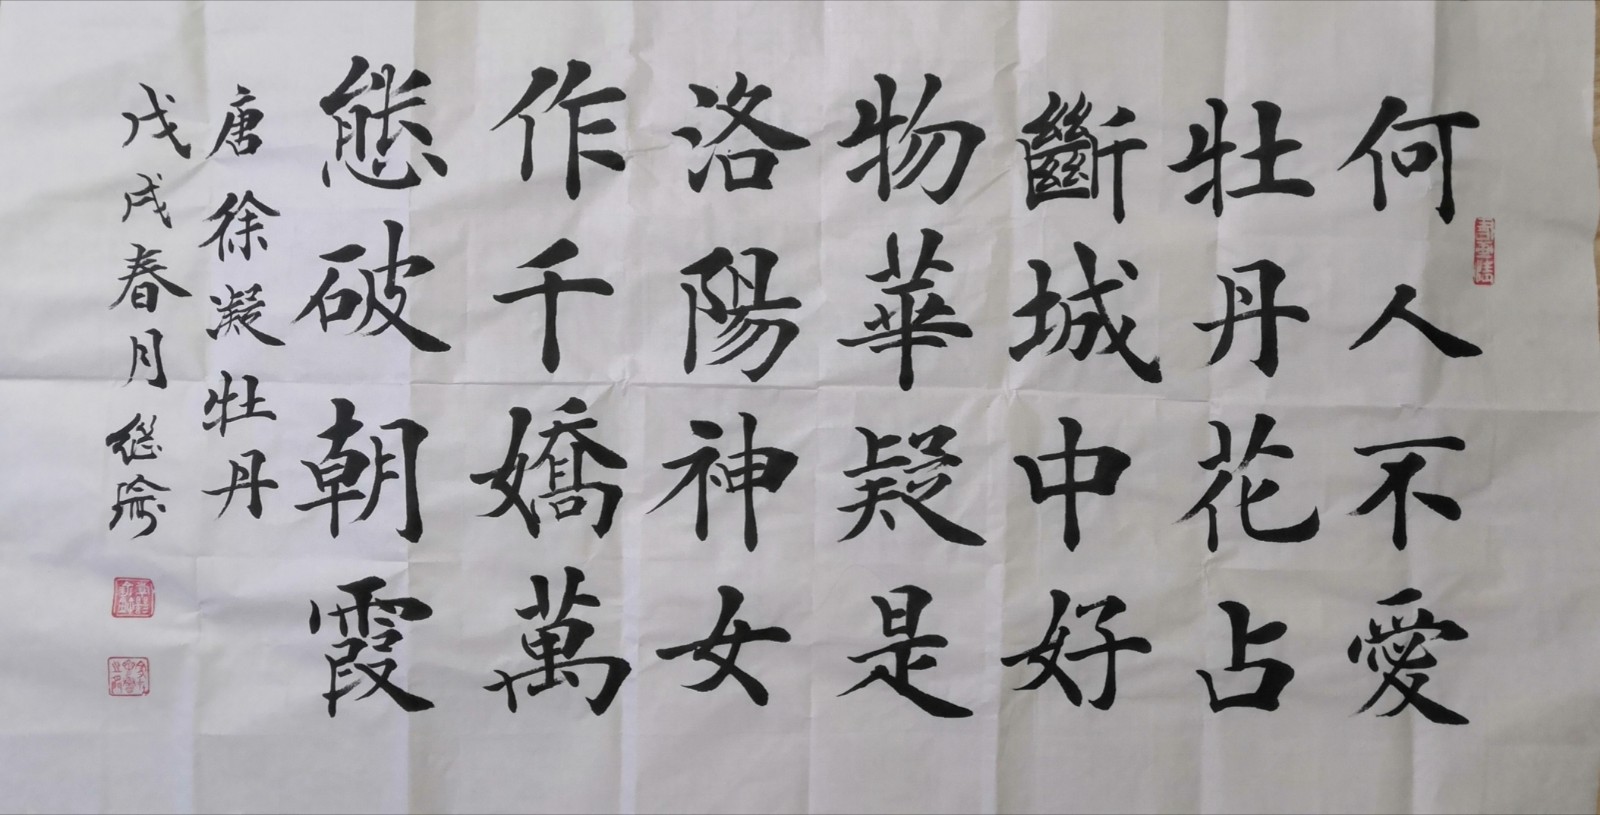 何人不愛
牡丹花占
斷城中好
物華疑是
洛陽神女
作千嬌萬
態破朝霞
唐徐凝牡丹
戊戌春月繼瑜